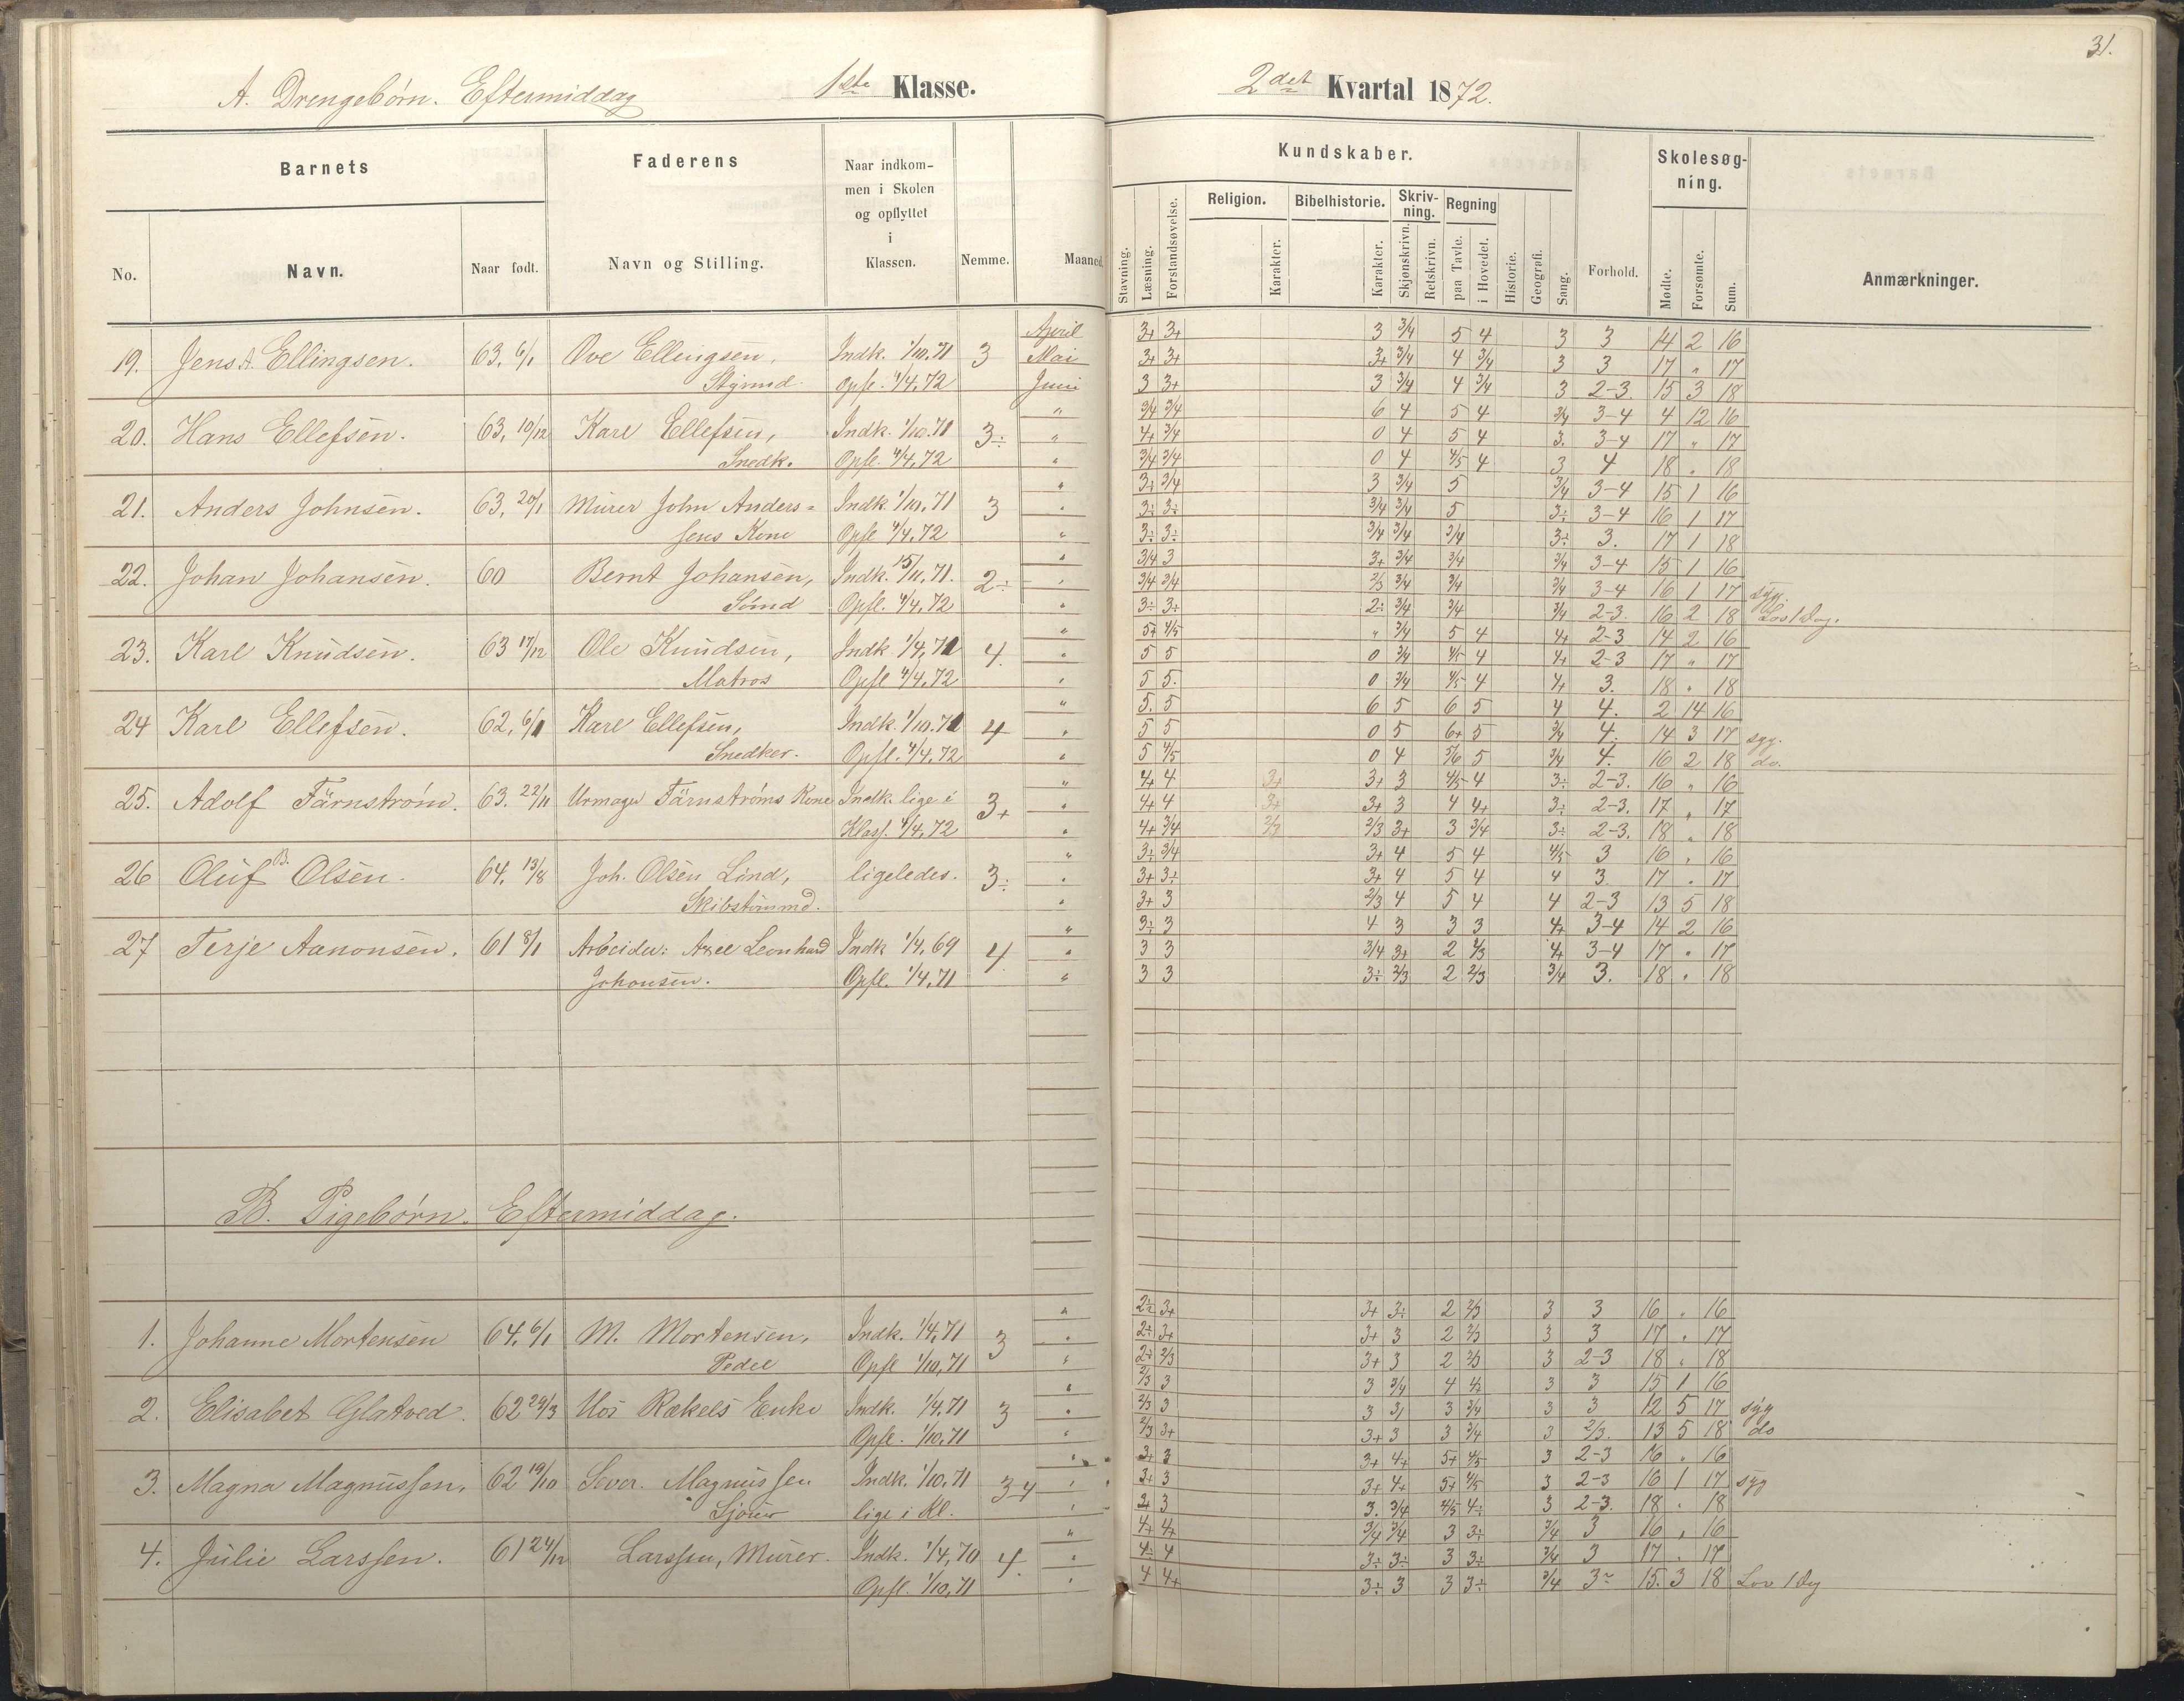 31.
A. Drengebørn. Eftermiddag 1ste Klasse. 2det Kvartal 1872.
Barnets Faderens Naar indkom-
men i Skolen
og opflyttet
i
Klassen. Nemme. Maaned.
No. Navn. Naar født. Navn og Stilling.
Kundskaber. Skolesøg-
ning.
Stavning. Læsning. Forstandsøvelse. Religion. Karakter. Bibelhistorie. Karakter. Skriv-
ning. Skjønskrivn. Retskrivn. Regning paa Tavle. i Hovedet. Historie. Geografi. Sang. Forhold. Møde. Forsømte. Sum. Anmærkninger.
April 3+ 3+ 3 3/4 5 4 3 3 14 2 16
19. Jens A. Ellingsen. 63. 6/1 Ove Ellingsen, Indk. 1/10.71 3 Mai 3+ 3+ 3+ 3/4 4 3/4 3 3 17 " 17
Styrmd. Opfl. 4/4.72 Juni 3 3+ 3 3/4 4 3/4 3 2-3. 15 3 18
" 3/4 3/4 6 4 5 4 3/4 3-4 4 12 16
20. Hans Ellefsen. 63, 19/12 Karl Ellefsen, Indk. 1/10.71 3÷ " 4+ 3/4 0 4 5 4 3. 3-4 17 " 17
Snedk. Opfl. 4/4.72 " 3/4 3/4 0 4 4/5 4 3 4 18 " 18
" 3+ 3/4 3 3/4 5 3/4 3-4 15 1 16
21. Anders Johnsen. 63, 20/1 Murer John Anders= Indk 1/10.71 3 " 3÷ 3÷ 3/4 3/4 5 3÷ 3-4 16 1 17
sens Kone Opfl 4/4.72 " 3÷ 3÷ 3/4 3/4 3/4 3÷ 3. 17 1 18
" 3/4 3 3+ 3/4 3/4 3/4 3-4 15 1 16
22. Johan Johansen. 60 Bernt Johansen, Indk. 15/11.71. 2÷ " 3/4 3/4 2/3 3/4 3/4 3/4 3-4 16 1 17 syg.
Sømd Opfl. 4/4.72 " 3÷ 3÷ 2÷ 3/4 3/4 3/4 2-3. 16 2 18 Lov 1 Dag.
" 5+ 4/5 " 3/4 5 4 4+ 2-3 14 2 16
23. Karl Knudsen. 63 17/12 Ole Knudsen, Indk 1/4.71 4. " 5 5 0 3/4 4/5 4 4+ 2-3 17 " 17
Matros Opfl 4/4.72 " 5 5. 0 3/4 4/5 4 4+ 3. 18 " 18
" 5. 5 6 5 6 5 4 4. 2 14 16
24 Karl Ellefsen. 62. 6/1 Karl Ellefsen, Indk. 1/10.71 4 " 5 5 0 5 6+ 5 3/4 4. 14 3 17 syg.
Snedker. Opfl. 4/4.72 " 5 4/5 0 4 5/6 5 3/4 4. 16 2 18 do.
" 4+ 4 3+ 3+ 3 4/5 4 3÷ 2-3. 16 " 16
25. Adolf Färnstrøm. 63. 22/11 Urmager Färnstrøms Kone Indk. lige i 3+ " 4+ 4 3+ 3+ 3 4 4+ 3÷ 2-3. 17 " 17
Klass. 4/4.72 " 4+ 3/4 2/3 2/3 3+ 3 3/4 3÷ 2-3. 18 " 18
" 3÷ 3/4 3+ 4 5 4 4/5 3 16 " 16
26 Oluf B. Olsen. 64. 13/8 Joh. Olsen Lind, ligeledes. 3÷ " 3+ 3÷ 3+ 4 5 4 4 3. 17 " 17
Skibstømmd. " 3+ 3 2/3 4 5 4 4 2-3 13 5 18
" 3÷ 3 4 3 3 3 4+ 3-4 14 2 16
27 Terje Aanonsen. 61 8/1 Arbeider: Axel Leonhard Indk 1/4.69 4. " 3 3 3/4 3+ 2 2/3 4+ 3-4 17 " 17
Johonsen. Opfl. 1/4.71 " 3 3 3÷ 2/3 2 2/3 3/4 3. 18 " 18
B. Pigebørn. Eftermiddag.
" 2÷ 3+ 3+ 3÷ 2 2/3 3 3 16 " 16
1. Johanne Mortensen 64. 6/1 M. Mortensen, Indk. 1/4.71 3 " 2÷ 3+ 3+ 3 2 2/3 3 3 17 " 17
Pedel Opfl 1/10.71 " 2÷ 2/3 3+ 3 2 2/3 3 2-3 18 " 18
" 2/3 3 3 3/4 4 4+ 3 3 15 1 16
2. Elisabet Glatved. 62 24/3 Hos Rækels Enke Indk. 1/4.71 3 " 2/3 3 3 3/ 3 3/4 3 3 12 5 17 syg
Opfl. 1/10.71 " 2/3 3+ 3+ 3 3 3/4 3 2/3. 13 5 18 do
" 3+ 3 3+ 4+ 5+ 4/5 3 2-3 16 " 16
3. Magna Magnussen. 62 19/10 Sever. Magnussen Indk. 1/10.71 3-4 " 3+ 3 3+ 4+ 5+ 4/5 3 2-3 16 1 17 syg
lige i Kl. " 3+ 3 3. 3/4 4/5 4÷ 3 2-3. 18 " 18
" 4+ 4+ 3/4 3/4 3 3÷ 3/4 3 16 " 16
4. Julie Larssen. 61 24/12 Larssen, Murer. Indk. 1/4.70 4. " 4÷ 4 3÷ 3÷ 3 3÷ 3/4 3 17 " 17
Opfl. 1/10.71 " 4 4+ 3÷ 3 3 3÷ 3/4 3~ 15. 3 18 Lov 1 Dag